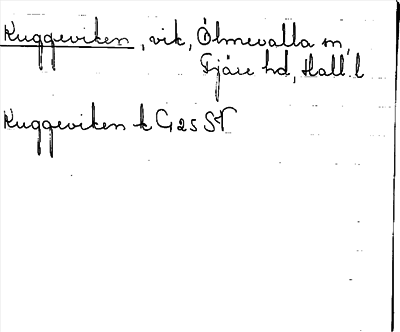 Kuggeviken, vik, Ölmevalla sn,
Fjäre hd, Hall. l
Kuggeviken k G 25 SV